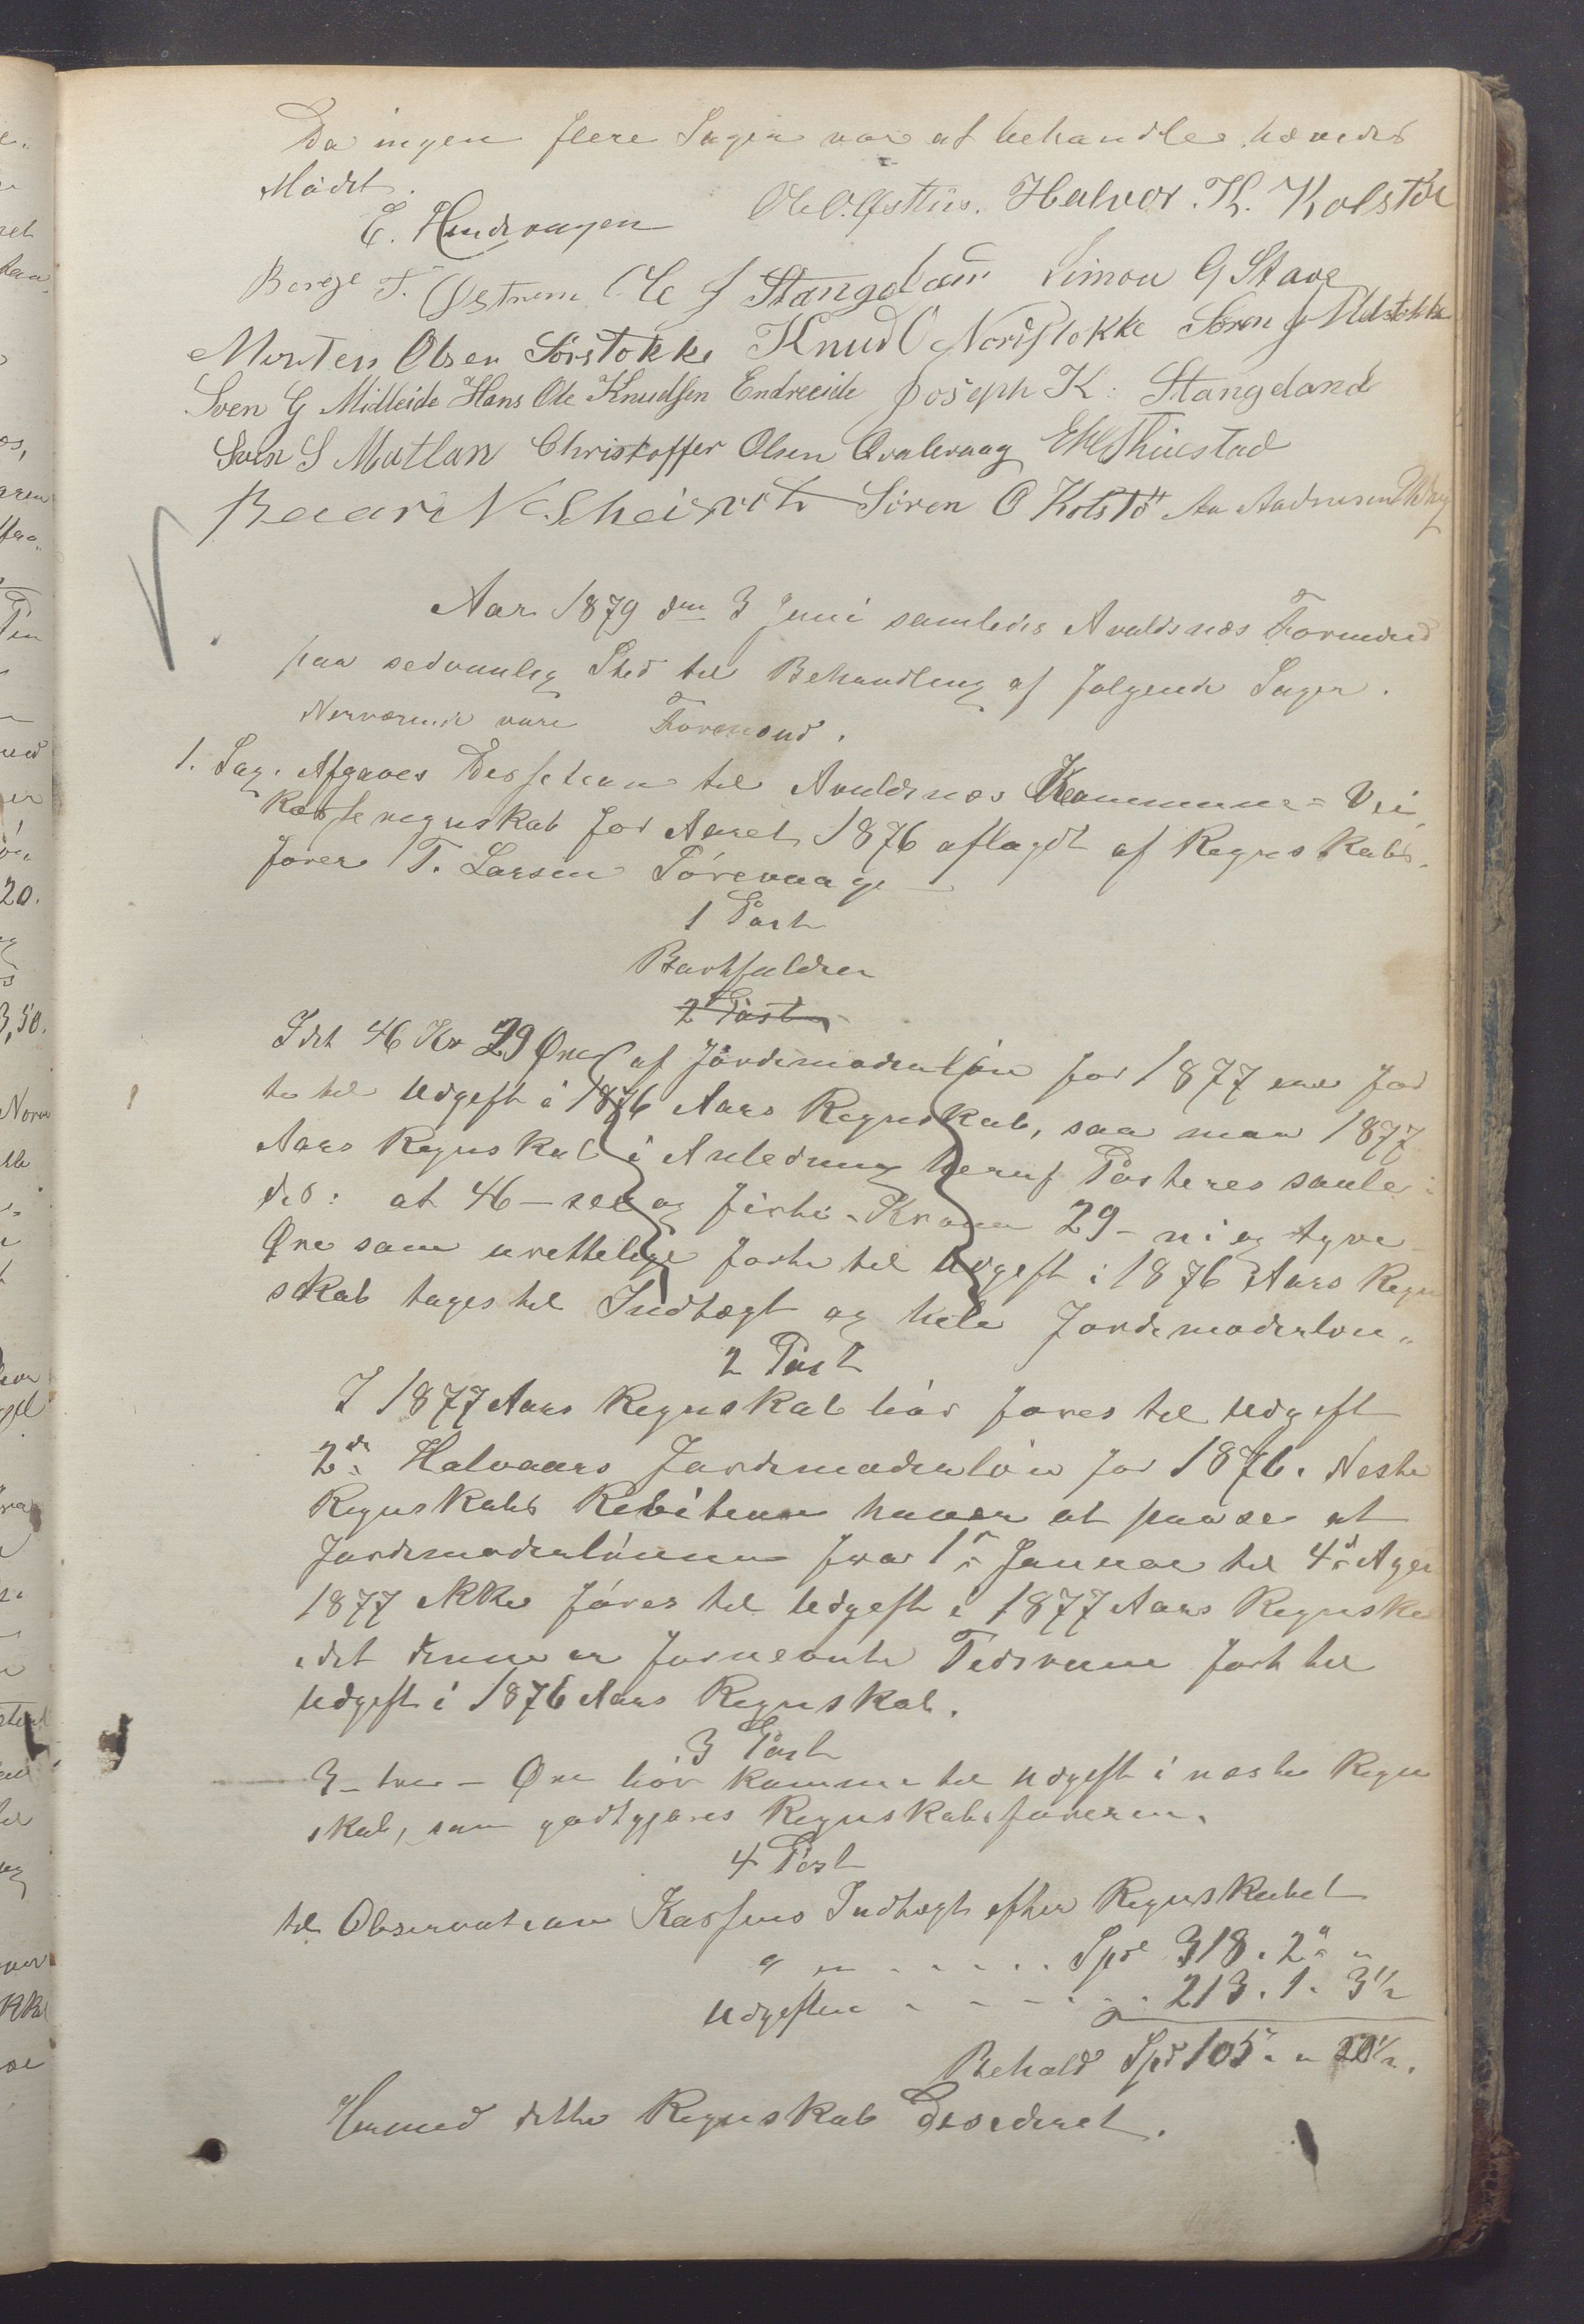 Da ingen flere Sager var at behandles hævedes
Mödet.
E. Hindvaagen Ole O. Husthus. Halvor. K. Kolstöe
Børge T. Östrem Ole J Stangeland Simon G Stave
Morten Olsen Sörstokke Knud O Nordstokke Sören J Melstokke
Sven G Midleide Hans Ole Knudsen Endreeide Joseph K: Stangeland
Sven S Mutlan Christoffer Olsen Qvalevaag Thuestad
Baar N. Scheisvoh Sören O Kolstö Aa Aadnesen
Aar 1879 den 3 Juni samledes Avaldsnæs Formænd
paa sedvanlig Sted til Behandling af følgende Sager.
Nærværende vare Formænd.
1. Sag. Afgaves Dessetion til Avaldsnæs Kommune = Vei
kasseregnskab for Aaret 1876 aflagdt af Regnskabs-
fører T. Larsen Törevaage
1 Post
Bortfalder
2 Post
Idet 46 Kr 29 Øre af Jordemoderlön for 1877 er før
te til Udgift i 1876 Aars Regnskab, saa maa 1877
Aars Regnskab i Anledning heraf Posteres saale:
des: at 46 – sex og firti – Kroner 29 – ni og tyve –
Øre som urettelige førte til Udgift i 1876 Aars Regn
skab tages til Indtægt og hele Jordemoderlön-
2 Post
I 1877 Aars Regnskab bör føres til Udgift
2de Halvaars Jordemoderlön for 1876. Neste
Regnskabs Rebitenn haver at paase at
Jordemoderlönnen fra 1ste Januar til 4de Apri
1877 ikke föres til Udgift i 1877 Aars Regnska
idet denne er fornævnte Tidsrum ført til
Udgift i 1876 Aars Regnskab.
3 Post
3 – tre – Øre bör komme til Udgift i næste Regn
skab, som godtgjøres Regnskabsføreren.
4 Post
til Observation Kassens Indtægt efter Regnskabet
er . . . . . Spd 318. 2 " "
Udgiften - - - - - 213. 1. 3½
Behold Spd 105 " " 20½.
Hermed dette Regnskab Desideret.